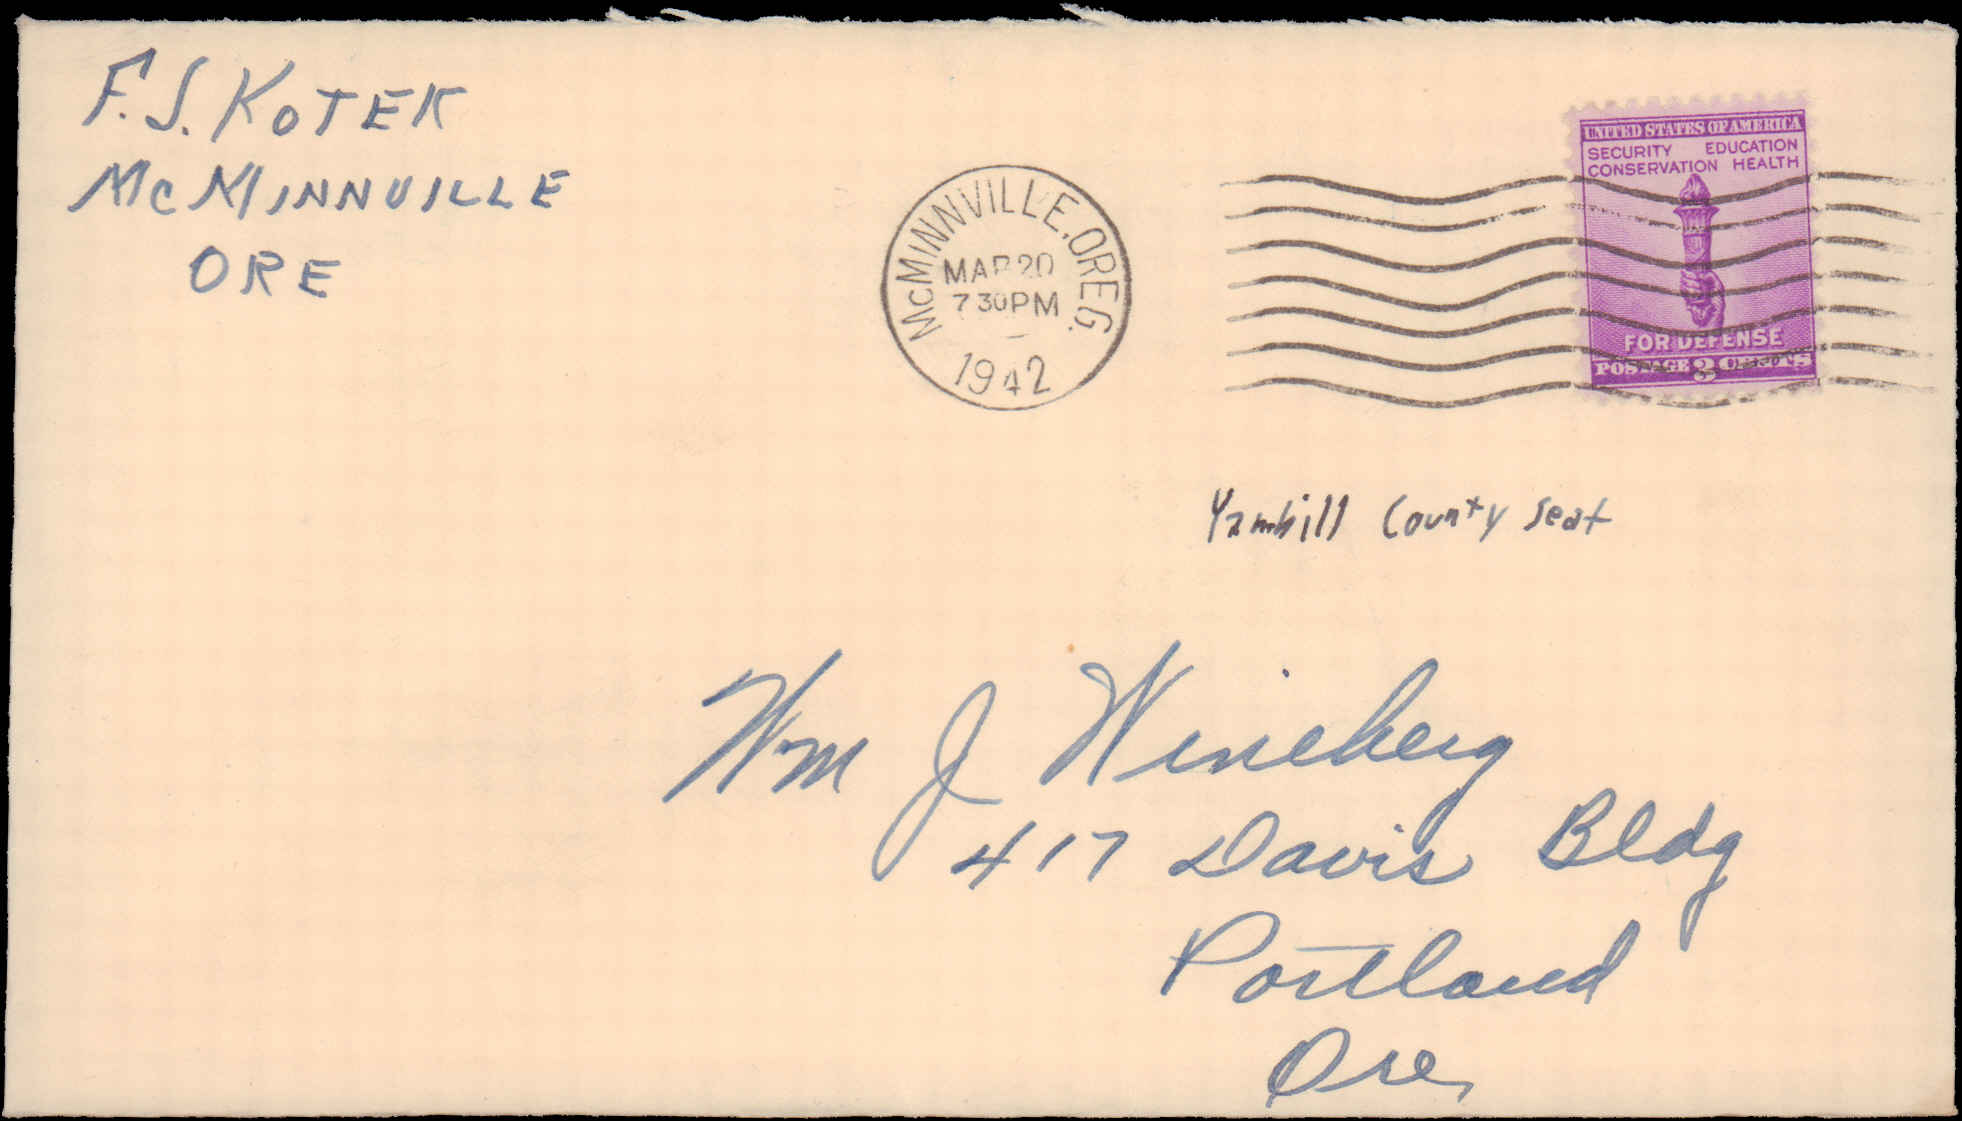 F. S. KOTEK
McMINNVILLE
ORE
McMINNVILLE, OREG.
MAR 20
7 30 PM
1942
UNITED STATES OF AMERICA
SECURITY EDUCATION
CONSERVATION HEALTH
FOR DEFENSE
POSTAGE 3 CENTS
Yamhill County seat
Wm J Wineberg
417 Davis Bldg
Portland
Ore,